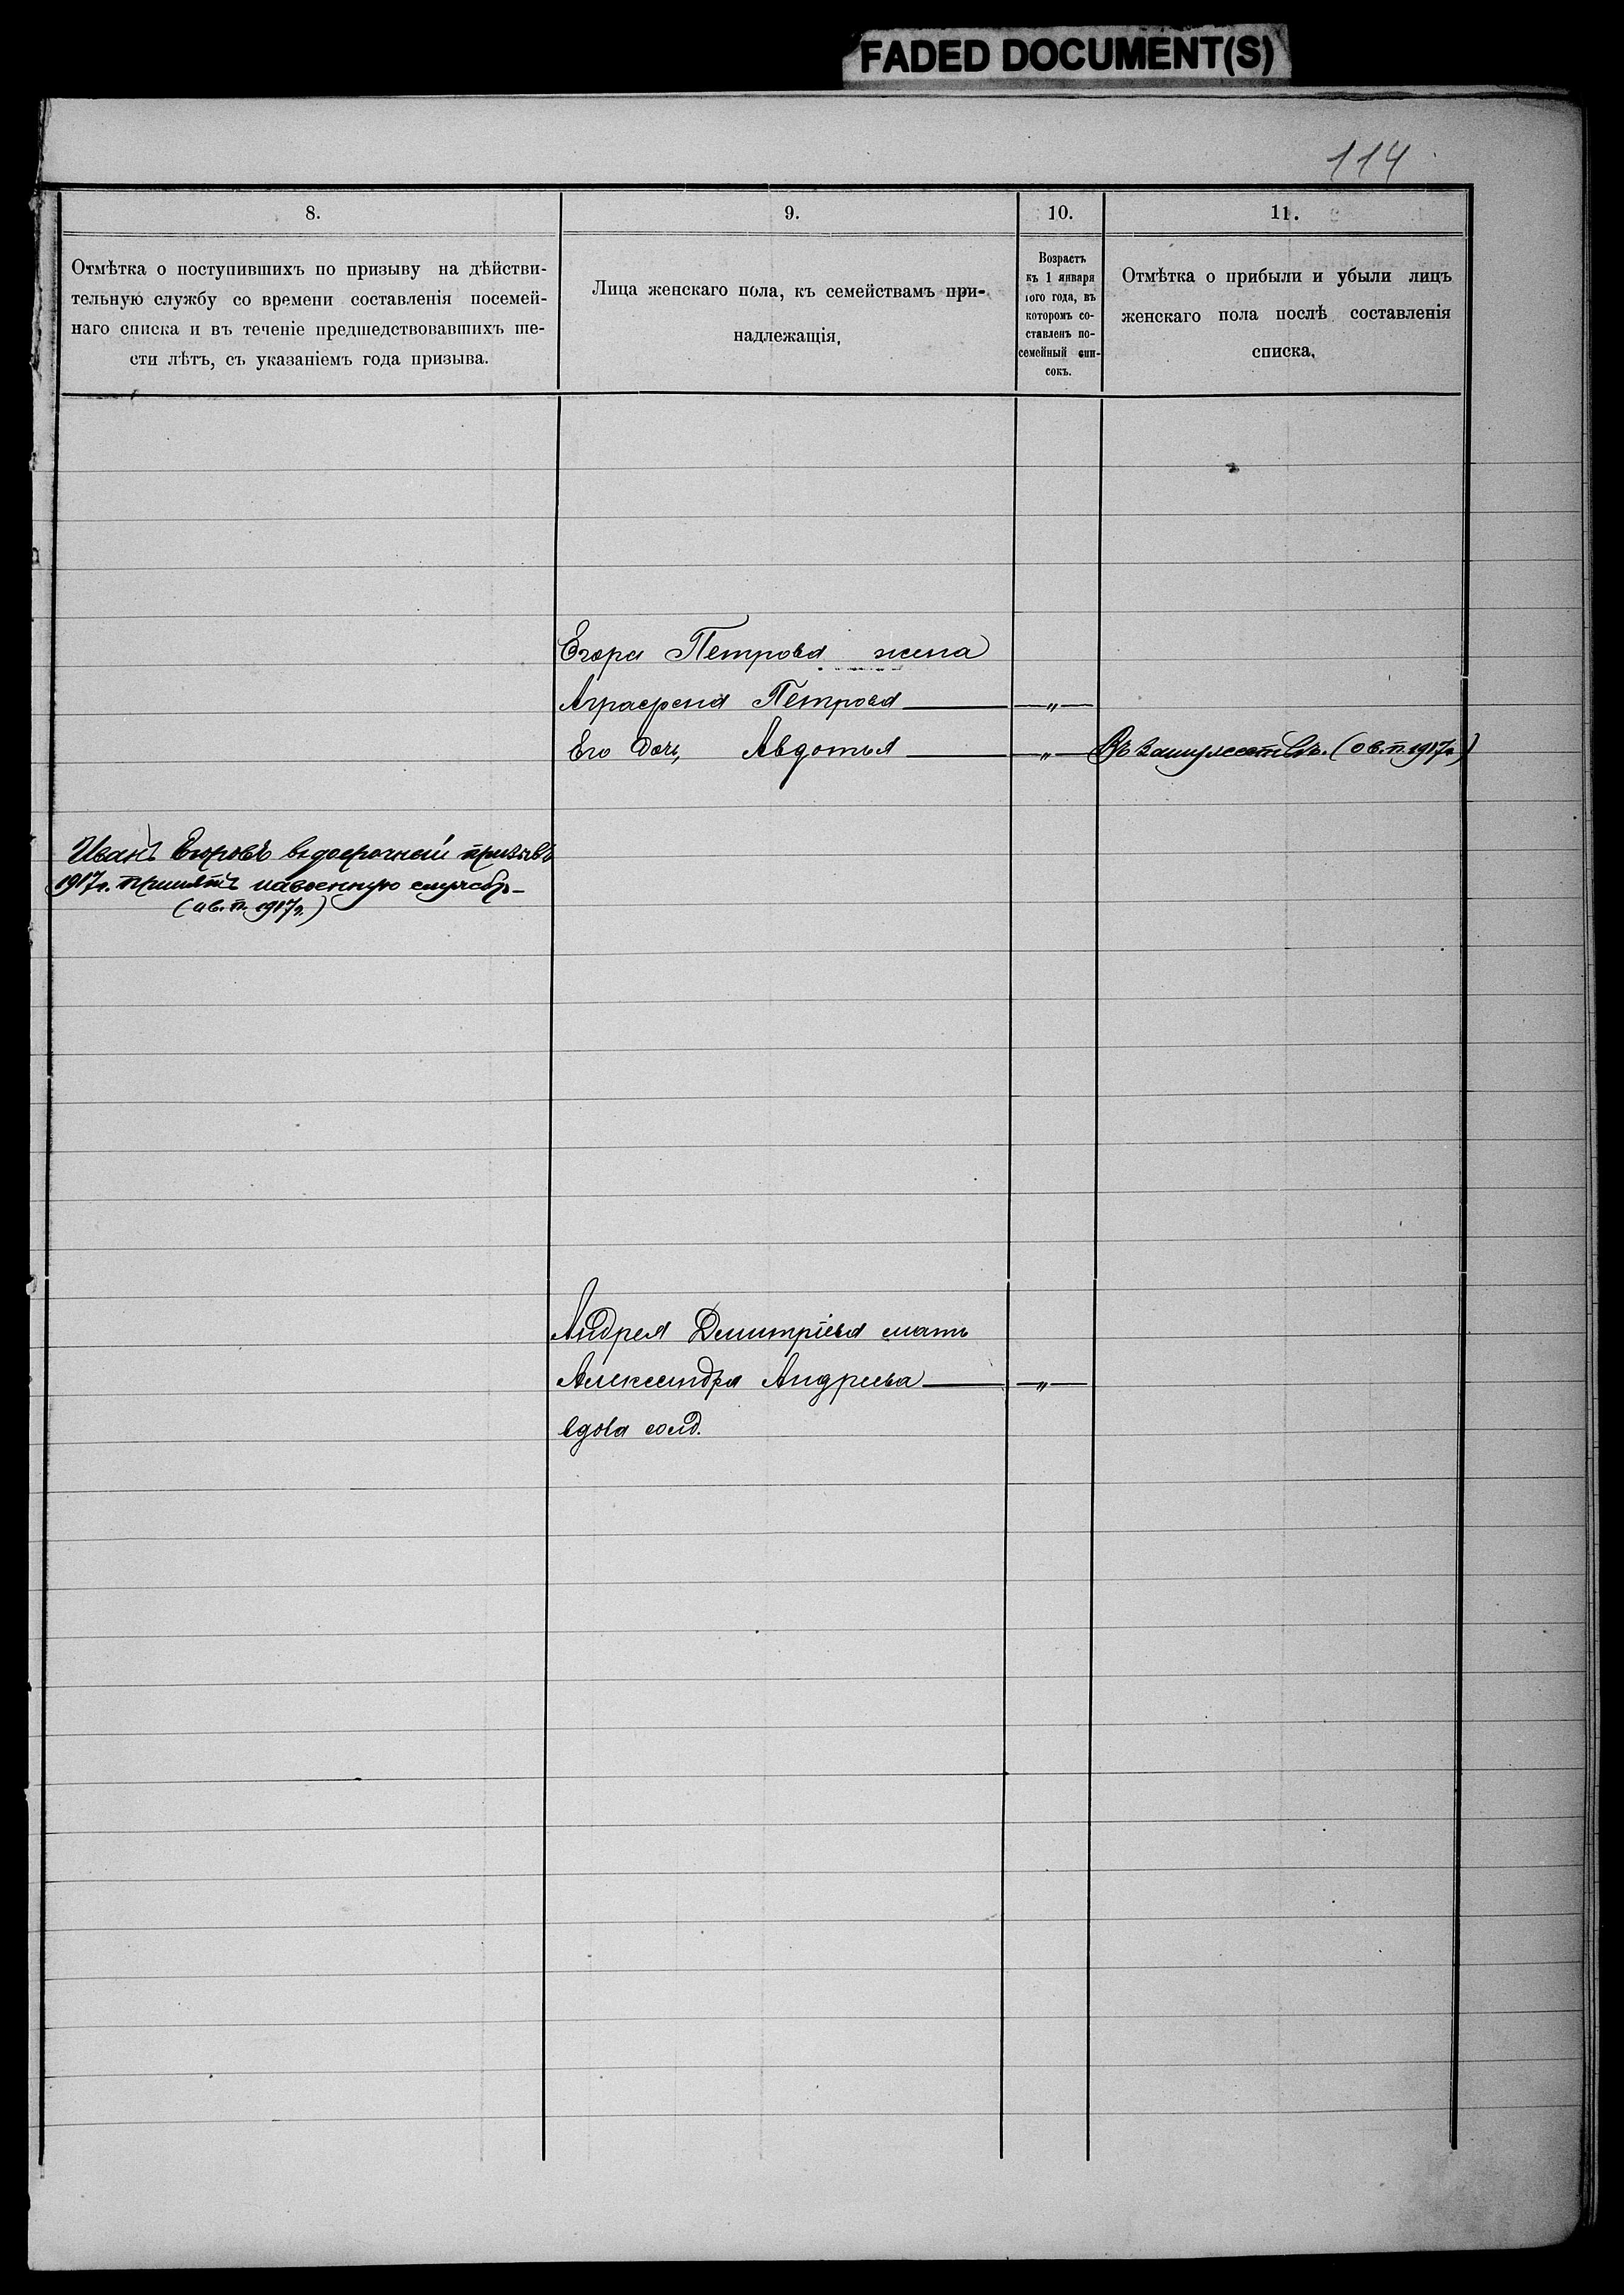 FADED DOCUMENT(S)
114
8.
9.
10.
11.
Отмѣтка о поступившихъ по призыву на дѣйстви-
тельную службу со времени составленія посемей-
наго списка и въ теченіе предшедствовавшихъ ше-
сти лѣтъ, съ указаніемъ года призыва.
Лица женскаго пола, къ семействамъ при-
надлежащія,
Возрастъ
къ 1 января
того года, въ
которомъ со-
ставленъ по-
семейный спи-
сокъ.
Отмѣтка о прибыли и убыли лицъ
женскаго пола послѣ составленія
списка.
Егора Петрова жена
Аграфена Петрова — „ —
Его дочь, Авдотья — „ — Въ замужествѣ. (о в. п. 1917 г.)
Иванъ Егоровъ въ досрочный призывъ
1917 г. принятъ на военную службу
(о в. п. 1917 г.)
Андрея Дмитріева мать
Александра Андреева — „ —
вдова солд.